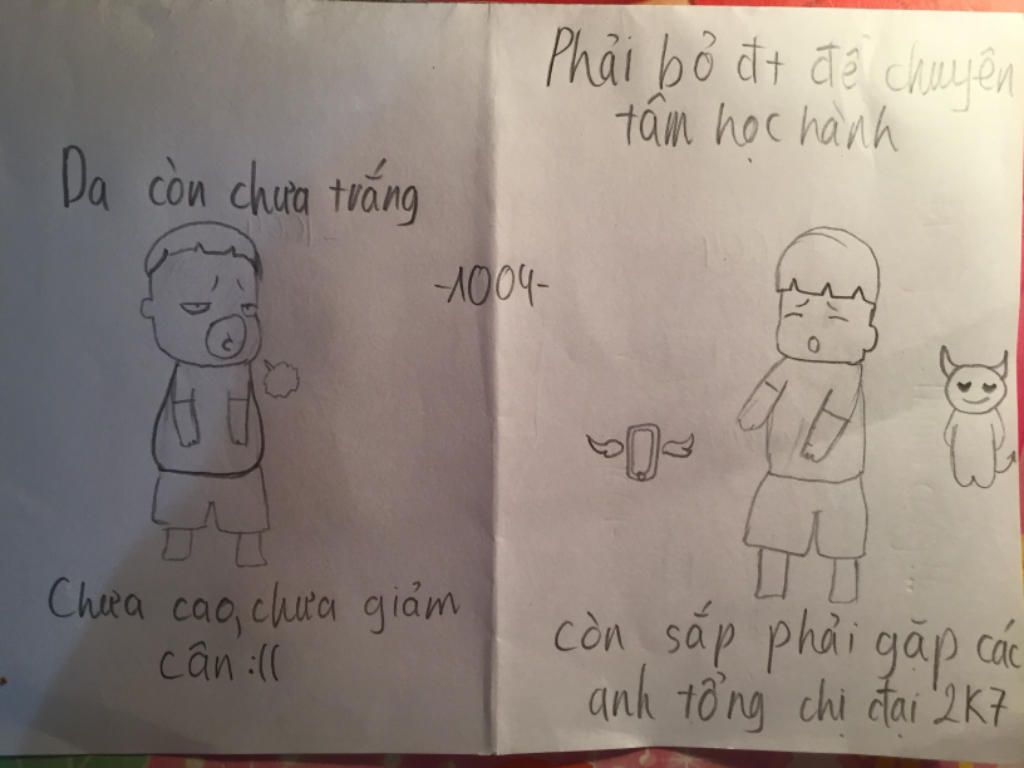 Da còn chưa trắng
Chưa cao, chưa giảm
cân :((
-1004-
Phải bỏ đt để chuyên
tâm học hành
còn sắp phải gặp các
anh tổng chị đại 2K7